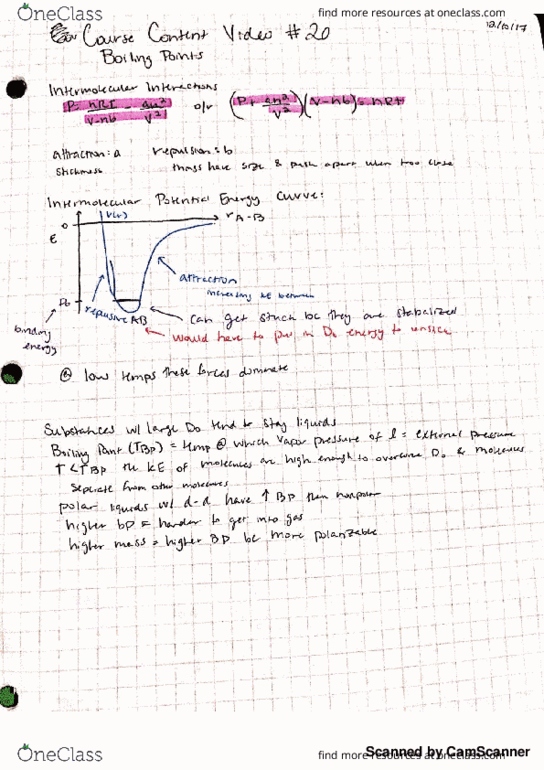 OneClass
find more resources at oneclass.com
12/10/17
Course Content Video #20
Boiling Points
Intermolecular Interactions
P= nRT/V-nb - an²/V² or (P+ an²/V²)(V-nb)=nRt
attraction: a repulsion: b
Stickiness things have size & push apart when too close
Intermolecular Potential Energy Curve:
V(r)
r A-B
0
E
attraction
increasing KE between
repulsive AB
can get stuck bc they are stabalized
would have to put in D₀ energy to unstick
binding
energy
@ low temps these forces dominate
Substances w/ large D₀ tend to stay liquids
Boiling Point (TBP) = temp @ which vapor pressure of l = external pressure
the KE of molecules are high enough to overcome D₀ & molecules
seperate from other molecules
polar liquids w/ d-d have ↑ BP than nonpolar
higher bp = harder to get into gas
higher mass = higher BP bc more polarizable
OneClass
find more resources at oneclass.com
Scanned by CamScanner